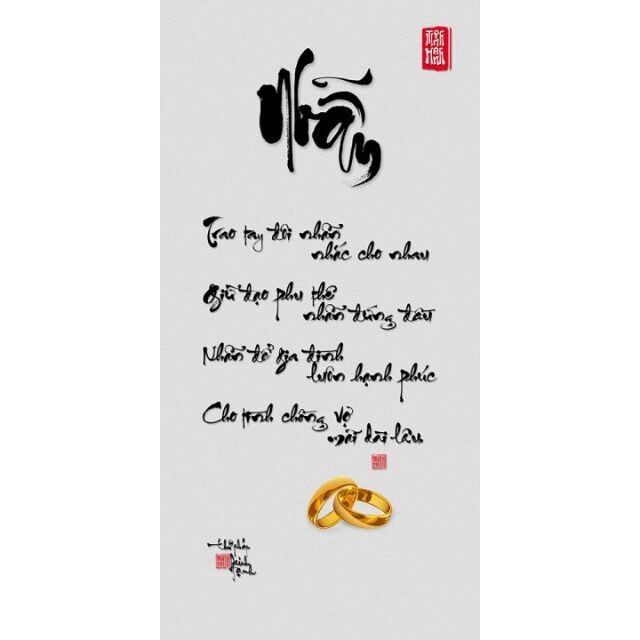 Nhẫn
Trao tay đôi nhẫn
nhắc cho nhau
Giữ đạo phu thê
nhẫn đứng đầu
Nhẫn để gia đình
luôn hạnh phúc
Cho tình chồng vợ
mãi dài lâu
thư pháp